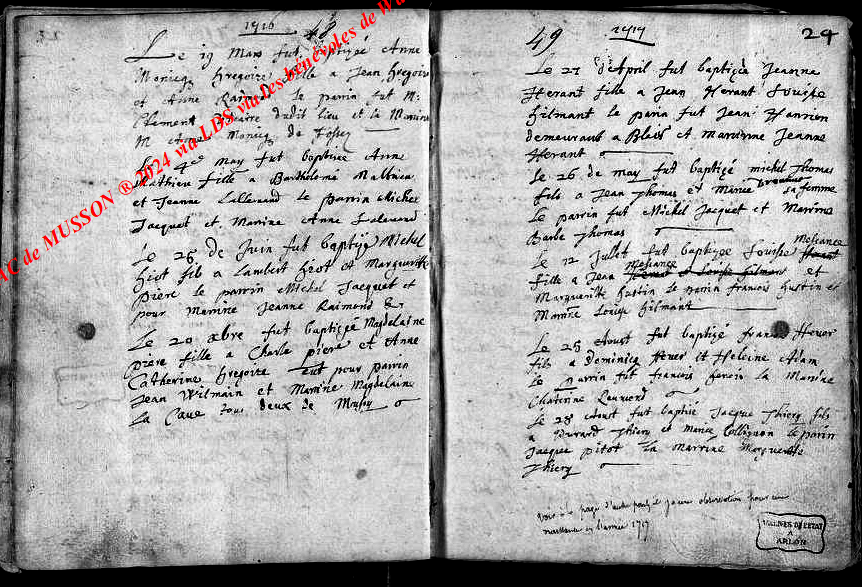 1716
48
Le 19 Mars fut baptizé Anne
Monieq Gregoire fille a Jean Gregoir
et Anne le parin fut M:
Clement dudit lieu et la Marine
M Anne Monieq de Tossez
Le 4ce may fut baptizee Anne
Mathieu fille a Bartholomé Mathieu
et Jeanne Lallemand le parrin Michel
Jacquet et Marine Anne Lalemend
Le 26 de Juin fut baptizé Michel
Giot fils a Lambert Giot et Marguerite
Piere le parrin Michel Jacquet et
pour Marine Jeanne Raimond &
Le 20 xbre fut baptizée Magdelaine
piere fille a Charle piere et Anne
Catherine Gregoire eut pour parin
Jean Wilmain et Marine Magdelaine
la Cave tous deux de Mussy
AC de MUSSON ® 2024 via LDS via les bénévoles de
49
1717
24
Le 27 d'April fut baptizée Jeanne
Herant fille a Jean Herant Louise
Gilmant le parin fut Jean Hanrion
demeurant a Bleid et Marinne Jeanne
Herant
Le 26 de may fut baptizé michel Thomas
fils a Jean Thomas et Marie sa femme
Le parrin fut Michel Jacquet et Marine
Barbe Thomas
Le 12 Jullet fut baptizee Louise Mesiance
fille a Jean Mesiance et
Marguerite Gustin le parin francois Gustin et
Marine Louise Gilmant
Le 25 Aoust fut baptizé francois Hever
fils a Dominicq Hever et Heleine Adam
Le parrin fut francois la Marine
Chaterine Laurend
Le 28 Aoust fut baptizé Jacque Thierq fils
a Thierq et Marie Collignon le parin
Jacque pitot la Marrine Marguerite
Thierq
Voir a la page d'autre part, il y a une observation pour une
naissance en l'année 1717
ARCHIVES DE L'ETAT
A
ARLON